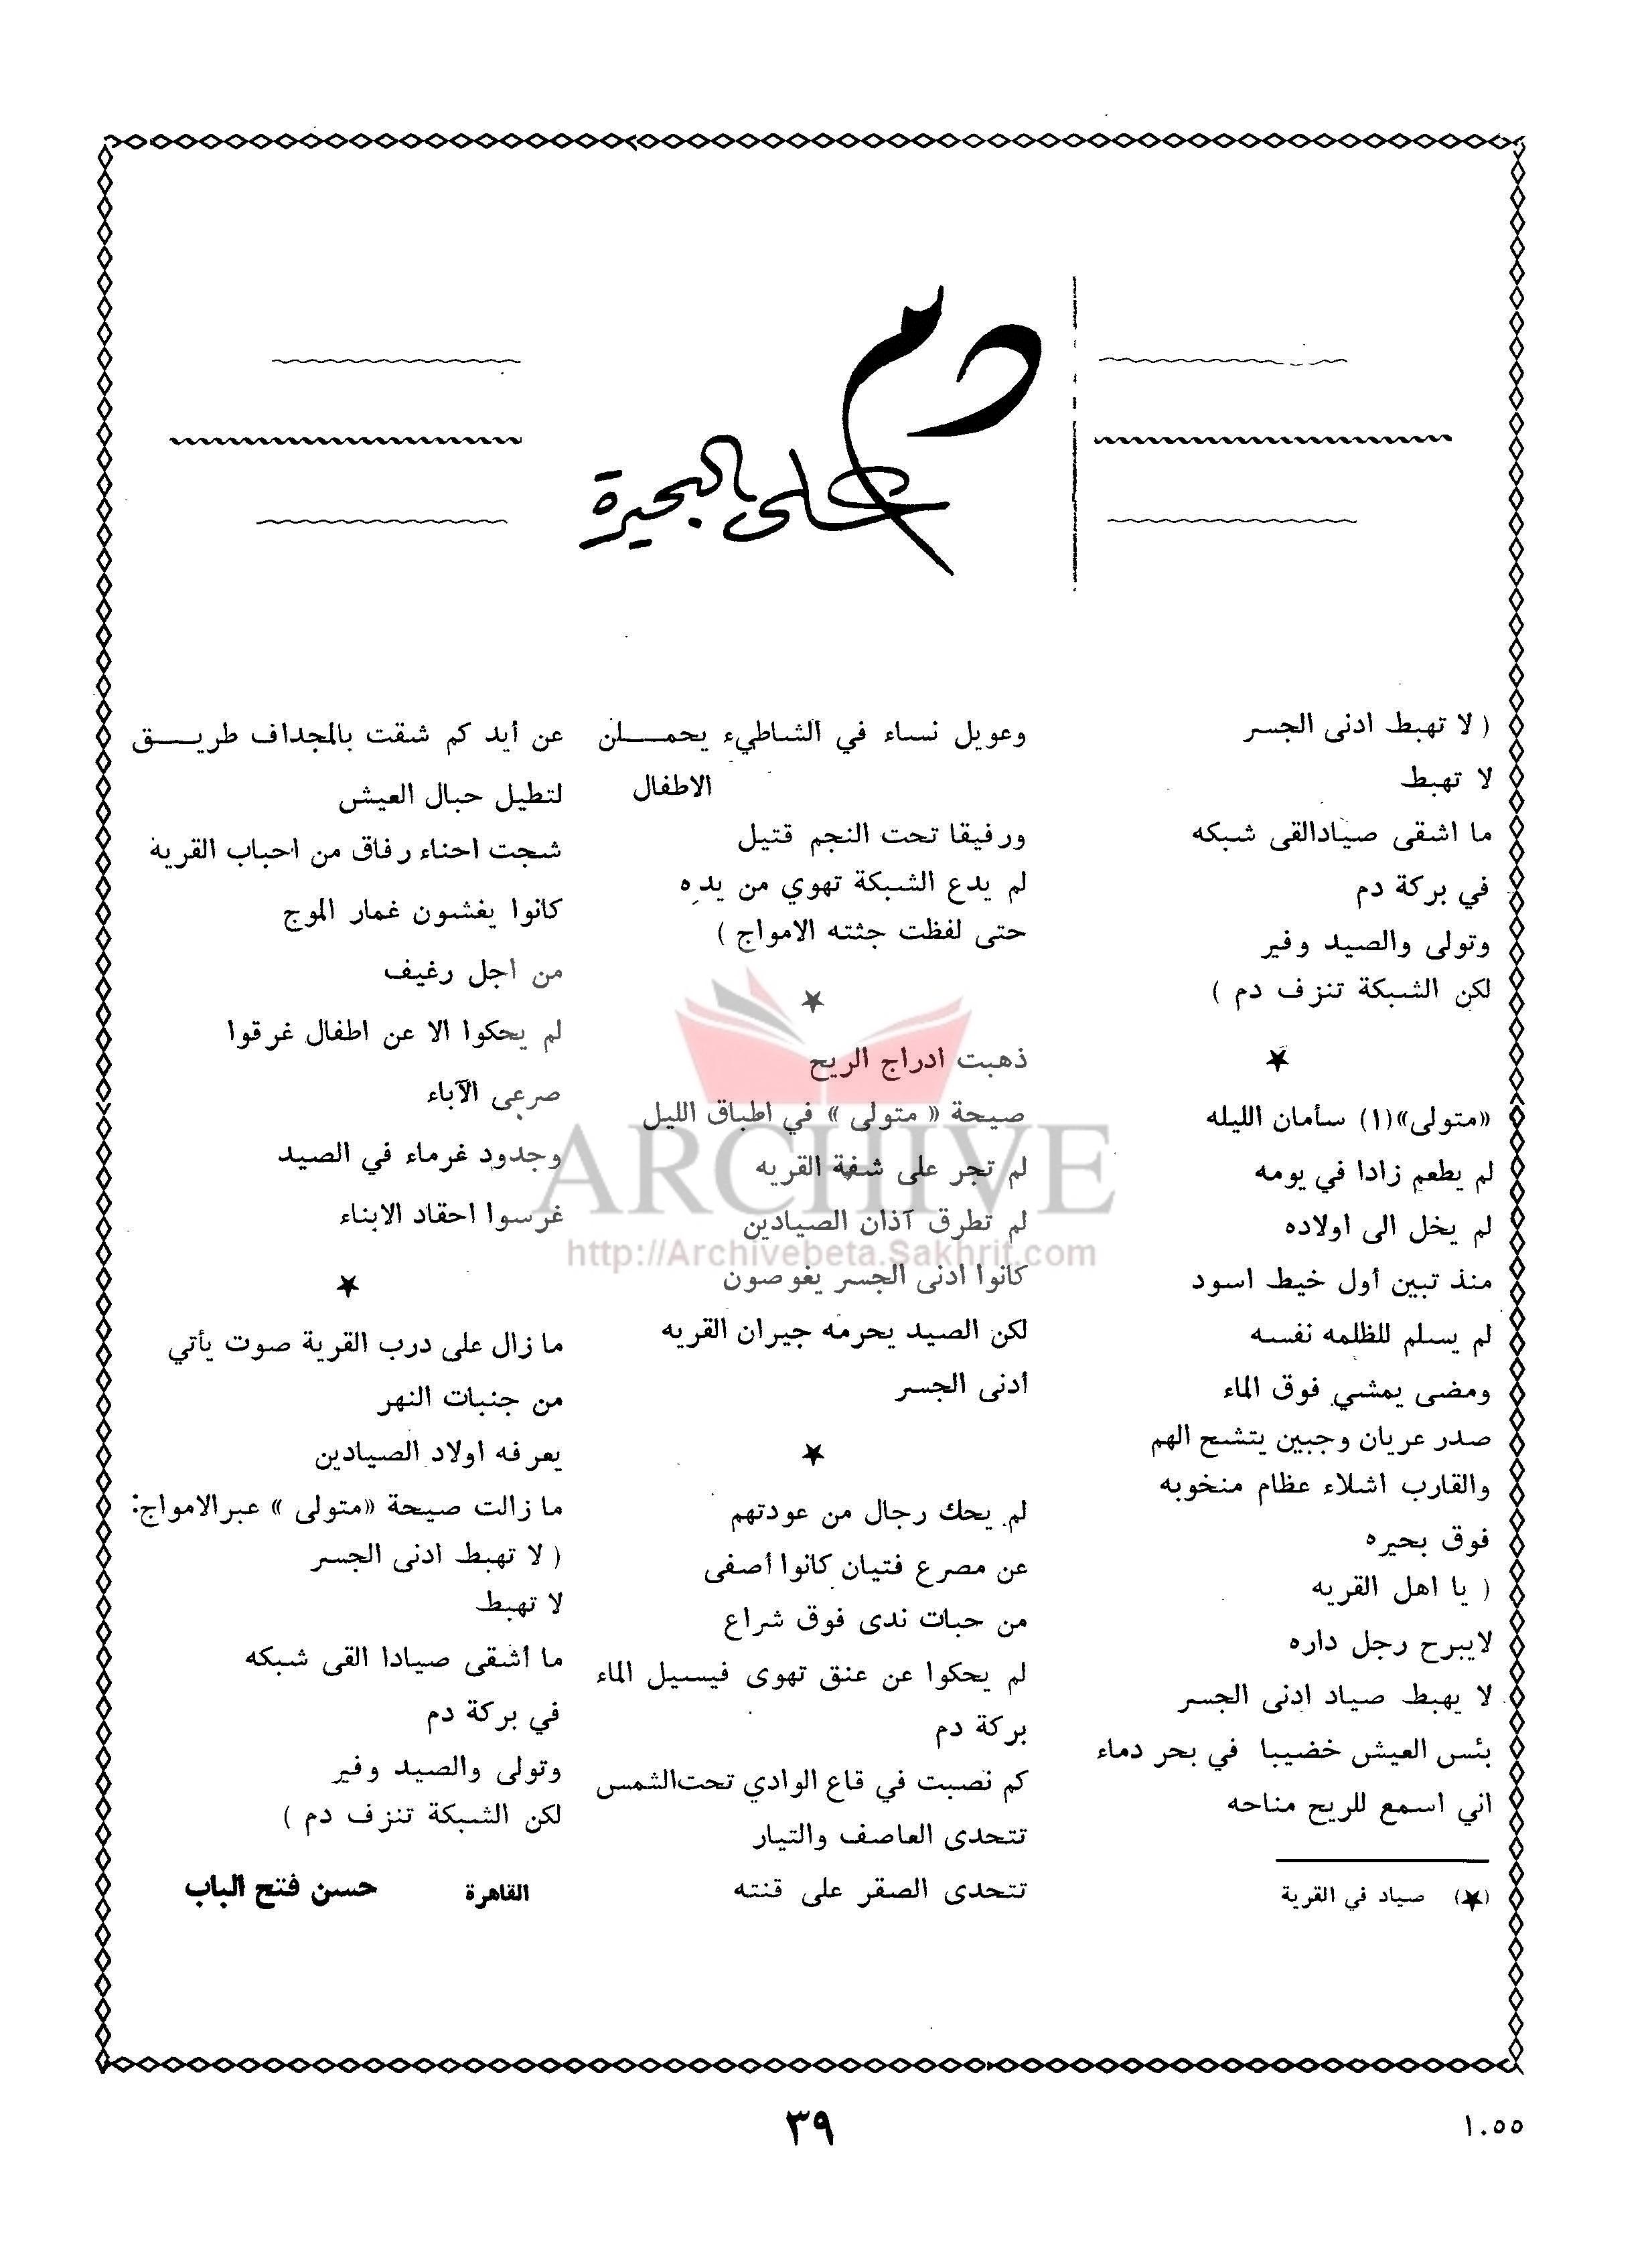 دم
على البحيرة
( لا تهبط ادنى الجسر
لا تهبط
ما اشقى صياداالقى شبكه
في بركة دم
وتولى والصيد وفير
لكن الشبكة تنزف دم )
★
«متولى»(١) سأمان الليله
لم يطعم زادا في يومه
لم يخل الى اولاده
منذ تبين أول خيط اسود
لم يسلم للظلمه نفسه
ومضى يمشي فوق الماء
صدر عريان وجبين يتشح الهم
والقارب اشلاء عظام منخوبه
فوق بحيره
( يا اهل القريه
لايبرح رجل داره
لا يهبط صياد ادنى الجسر
بئس العيش خضيبا في بحر دماء
اني اسمع للريح مناحه
(★) صياد في القرية
وعويل نساء في الشاطيء يحملن
الاطفال
ورفيقا تحت النجم قتيل
لم يدع الشبكة تهوي من يده
حتى لفظت جثته الامواج )
★
ذهبت ادراج الريح
صيحة « متولى » في اطباق الليل
لم تجر على شفة القريه
لم تطرق آذان الصيادين
كانوا ادنى الجسر يغوصون
لكن الصيد يحرمه جيران القريه
أدنى الجسر
★
لم يحك رجال من عودتهم
عن مصرع فتيان كانوا أصفى
من حبات ندى فوق شراع
لم يحكوا عن عنق تهوى فيسيل الماء
بركة دم
كم نصبت في قاع الوادي تحت الشمس
تتحدى العاصف والتيار
تتحدى الصقر على قنته
عن أيد كم شقت بالمجداف طريق
لتطيل حبال العيش
شجت احناء رفاق من احباب القرية
كانوا يغشون غمار الموج
من اجل رغيف
لم يحكوا الا عن اطفال غرقوا
صرعى الآباء
وجدود غرماء في الصيد
غرسوا احقاد الابناء
★
ما زال على درب القرية صوت يأتي
من جنبات النهر
يعرفه اولاد الصيادين
ما زالت صيحة «متولى » عبر الامواج:
( لا تهبط ادنى الجسر
لا تهبط
ما أشقى صيادا القى شبكه
في بركة دم
وتولى والصيد وفير
لكن الشبكة تنزف دم )
القاهرة حسن فتح الباب
ARCHIVE
http://Archivebeta.Sakhrit.com
٣٩
١٠٥٥